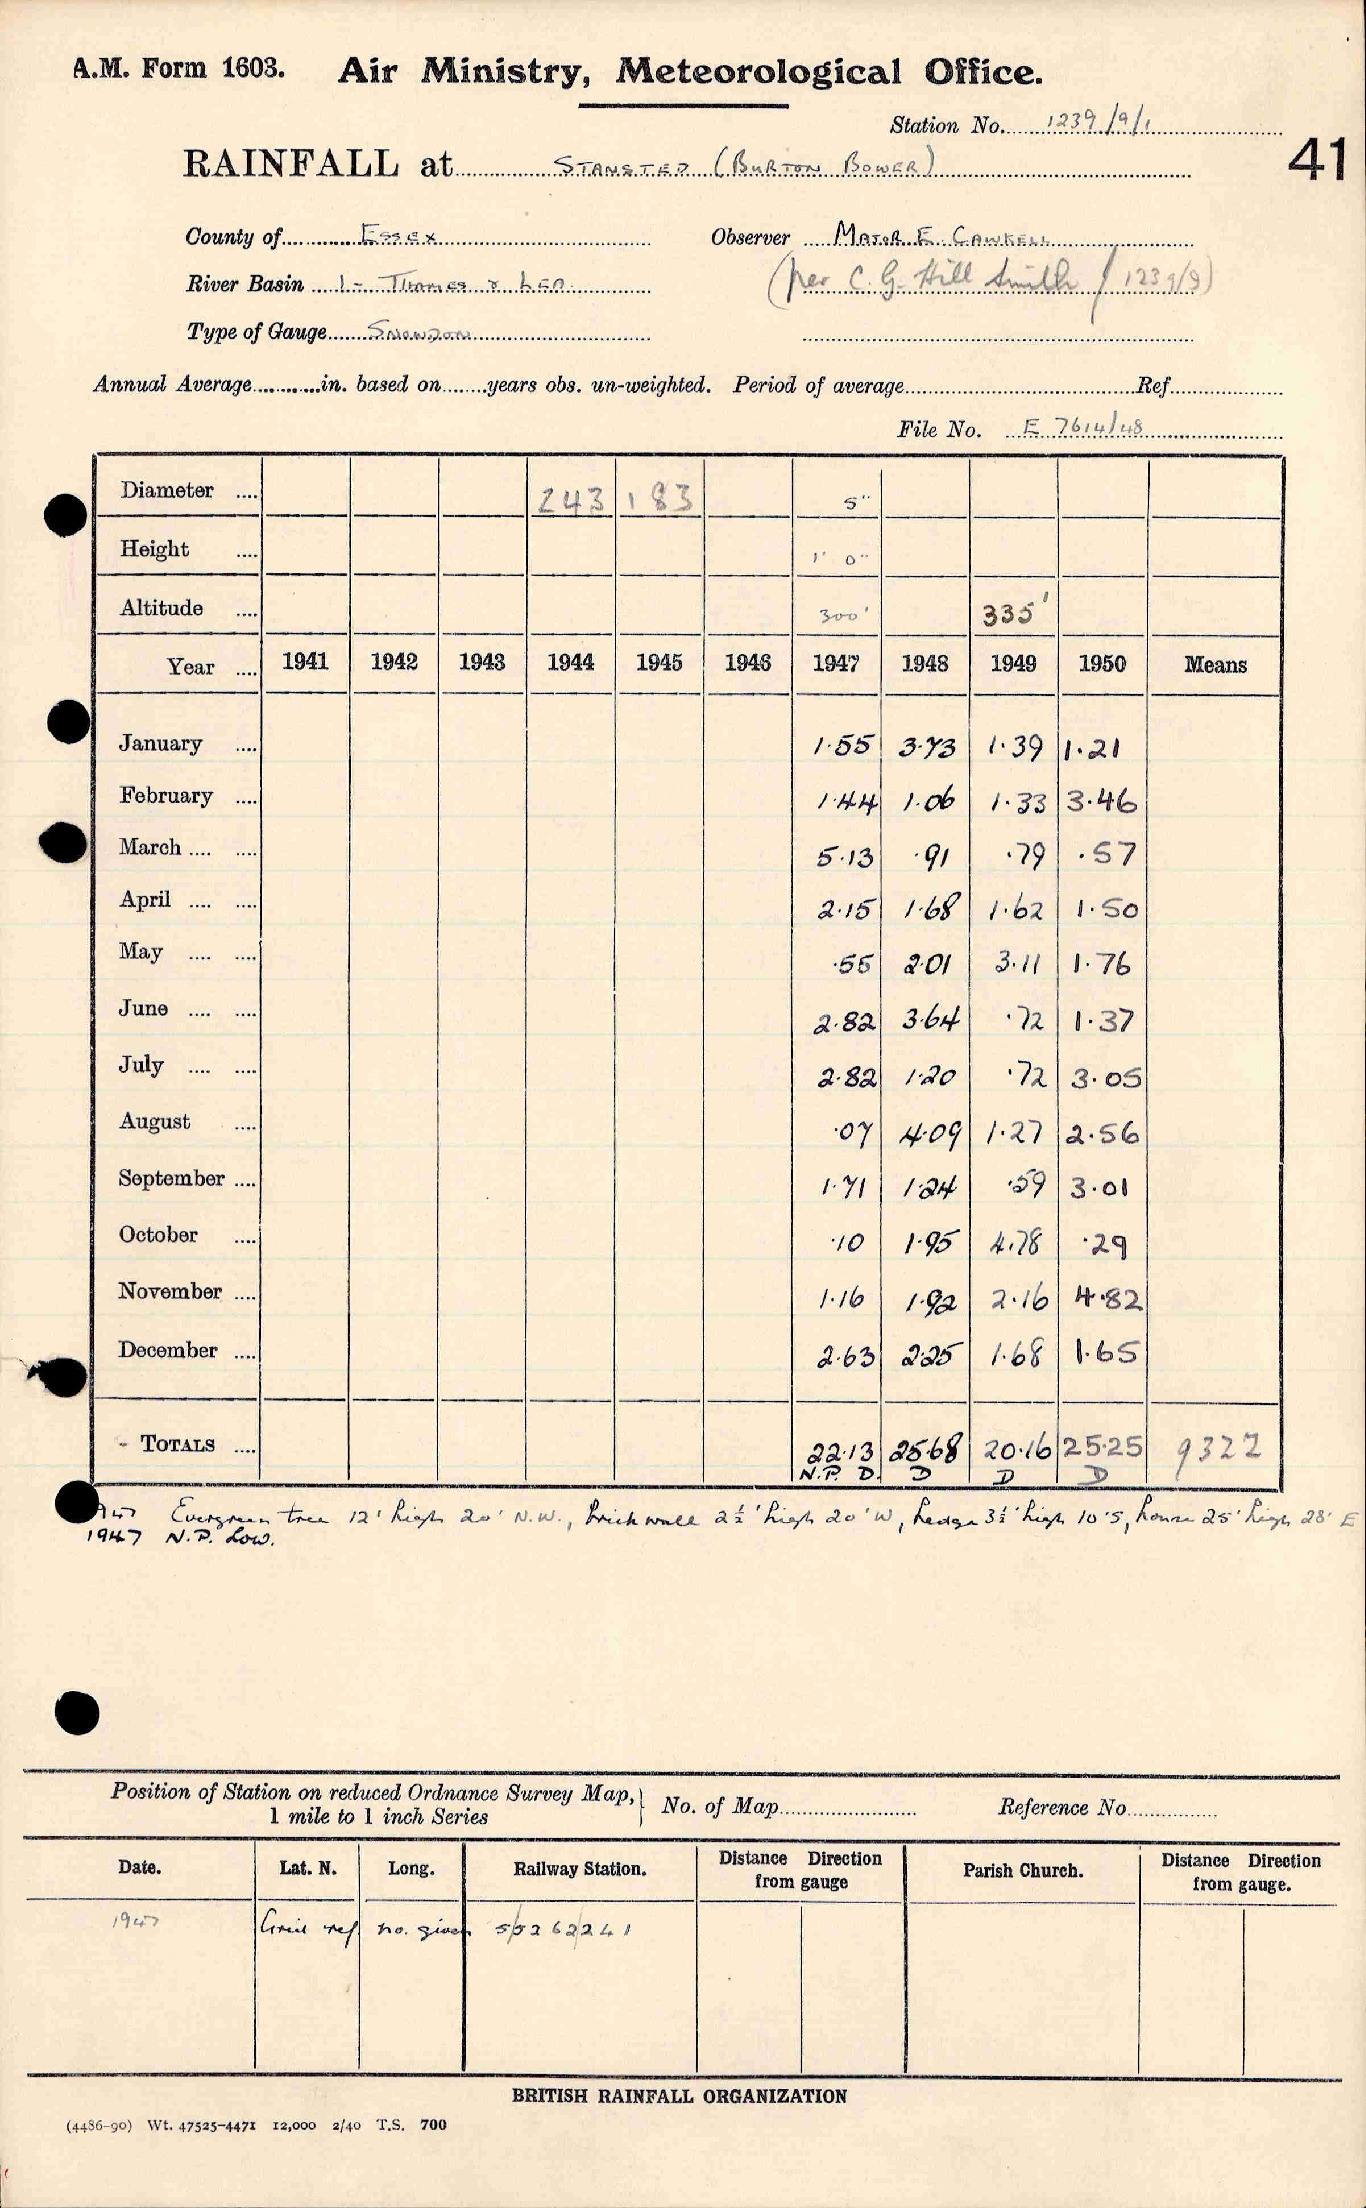 A.M. Form 1603. Air Ministry, Meteorological Office.
Station No. 1239/9/1
41
RAINFALL at STANSTED (BURTON BOWER)
County of ESSEX Observer MAJOR E. CAWKELL
River Basin 1 - THAMES & LEA (per C. G. Hill Smith / 1239/9)
Type of Gauge SNOWDON
Annual Average in. based on years obs. un-weighted. Period of average Ref.
File No. E 7614/48
Diameter 243 183 5"
Height 1' 0"
Altitude 300' 335'
Year 1941 1942 1943 1944 1945 1946 1947 1948 1949 1950 Means
January 1.55 3.73 1.39 1.21
February 1.44 1.06 1.33 3.46
March 5.13 .91 .79 .57
April 2.15 1.68 1.62 1.50
May .55 2.01 3.11 1.76
June 2.82 3.64 .72 1.37
July 2.82 1.20 .72 3.05
August .07 4.09 1.27 2.56
September 1.71 1.24 .59 3.01
October .10 1.95 4.78 .29
November 1.16 1.92 2.16 4.82
December 2.63 2.25 1.68 1.65
TOTALS 22.13 25.68 20.16 25.25 9322
N.P. D. D D D
Evergreen tree 12' high 20' N.W., brick wall 2½' high 20' W, hedge 3½' high 10' S, house 25' high 28' E
1947 N.P. Low.
Position of Station on reduced Ordnance Survey Map,
1 mile to 1 inch Series
No. of Map Reference No.
Date. Lat. N. Long. Railway Station. Distance Direction from gauge Parish Church. Distance Direction from gauge.
1947 Grid ref. no. given 5/5262241
BRITISH RAINFALL ORGANIZATION
(4486-90) Wt. 47525-4471 12,000 2/40 T.S. 700